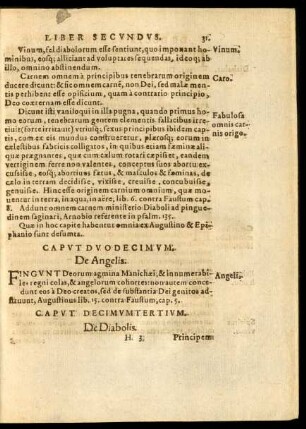 LIBER SECVNDVS. 31.
Vinum, fel diabolorum esse sentiunt, quo imponant ho- Vinum.
minibus, eosq; alliciant ad voluptates sequendas, ideoq; ab
illo, omnino abstinendum.
Carnem omnem à principibus tenebrarum originem Caro.
ducere dicunt: & sic omnem carnē, non Dei, sed malæ men-
tis perhibent esse opificium, quam à contrario principio,
Deo coæternam esse dicunt.
Dicunt isti vaniloqui in illa pugna, quando primus ho- Fabulosa
mo eorum, tenebrarum gentem elementis fallacibus irre- omnis car-
tiuit, utriusq; sexus principibus ibidem cap- nis origo.
tis, cum ex eis mundus construeretur, plærosq; eorum in
cælestibus fabricis colligatos, in quibus etiam fæminæ ali-
quæ prægnantes, quæ cum cælum rotari cœpisset, eandem
vertiginem ferre non valentes, conceptus suos abortu ex-
cussisse, eosq; abortiuos fætus, & masculos & fæminas, de
cælo in terram decidisse, vixisse, creuisse, concubuisse,
genuisse. Hincque esse originem carnium omnium, quæ mo-
uentur in terra, in aqua, in aëre, lib. 6. contra Faustum cap.
8. Addunt omnem carnem ministerio Diaboli ad pingue-
dinem saginari, Arnobio referente in psalm. 135.
Quæ in hoc capite habentur omnia ex Augustino & Epi-
phanio sunt desumta.
CAPVT DVODECIMVM.
De Angelis.
FINGVNT Deorum agmina Manichæi, & innumerabi- Angeli.
les regni colas, & angelorum cohortes: non autem conce-
dunt eos à Deo creatos, sed de substantia Dei genitos ad-
struunt, Augustinus lib. 15. contra Faustum, cap. 5.
CAPVT DECIMVMTERTIVM.
De Diabolis.
H. 3. Principem